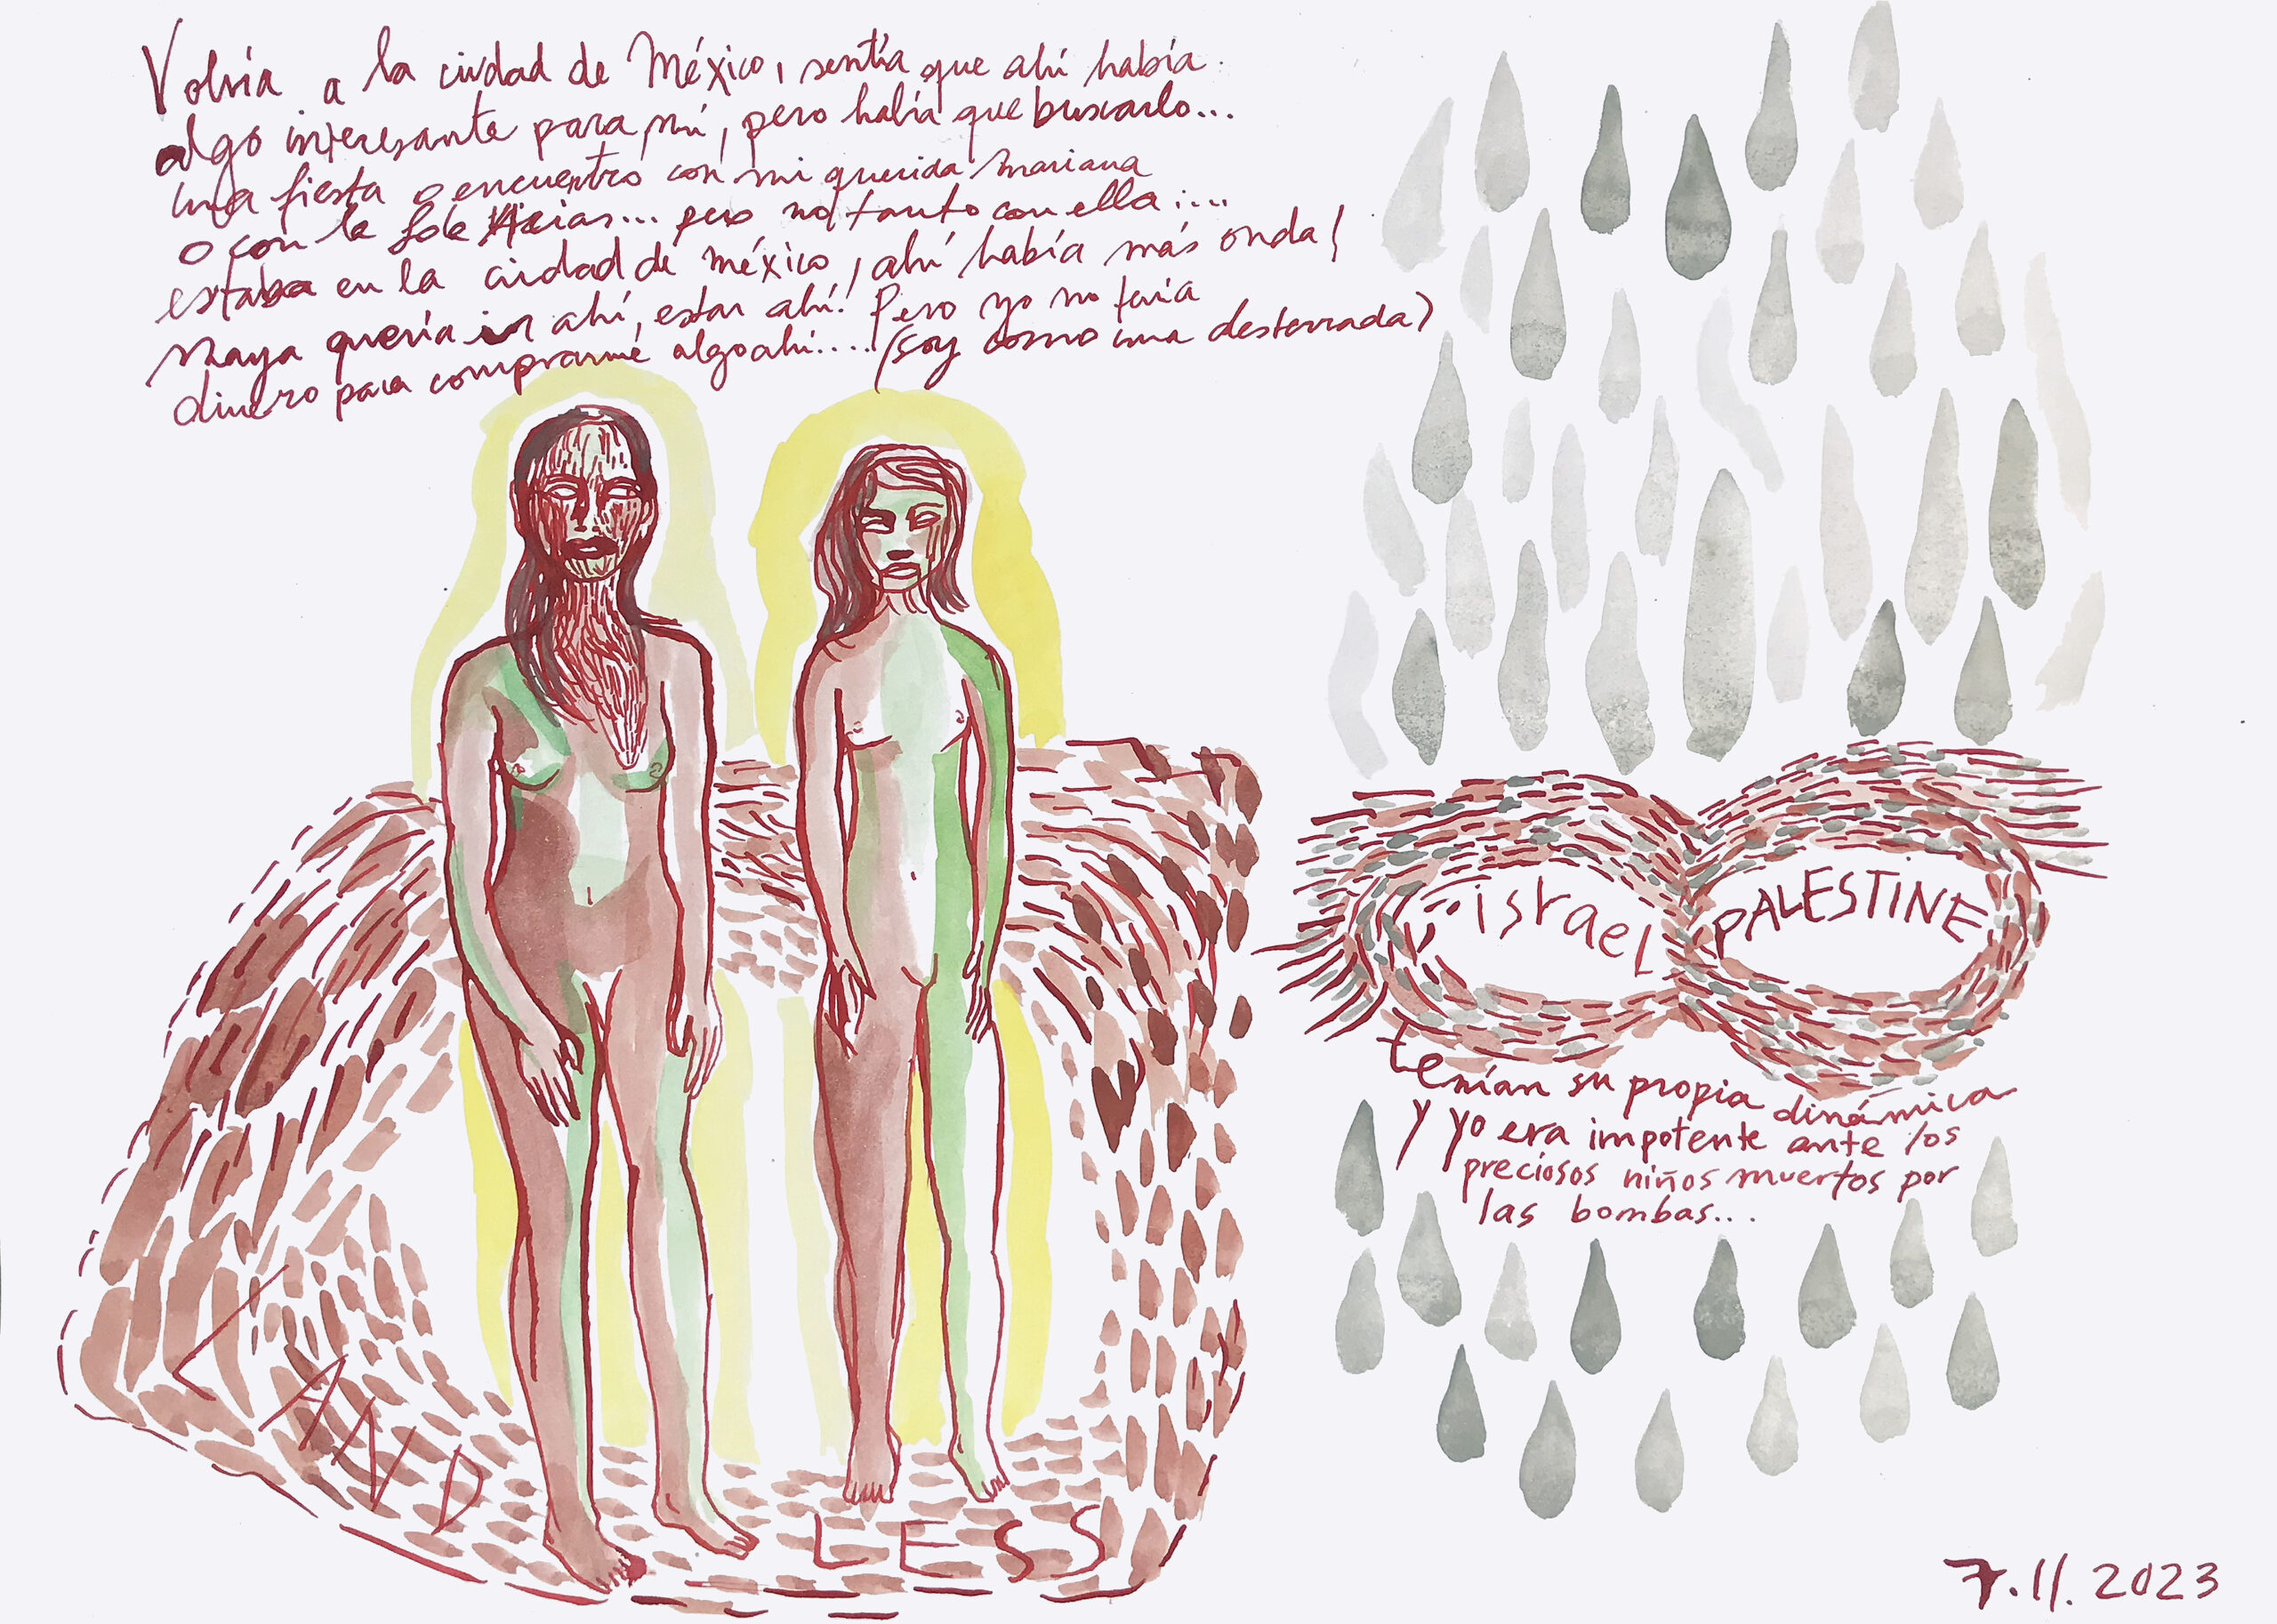 Volvía a la ciudad de México, sentía que ahí había
algo interesante para mí, pero había que buscarlo...
una fiesta o encuentro con mi querida Mariana
o con la Sole ... pero no tanto con ella ....
estaba en la ciudad de méxico, ahí había más onda!
Maya quería ir ahí, estar ahí! Pero yo no tenía
dinero para comprarme algo ahí.... (soy como una desterrada)
israel PALESTINE
tenían su propia dinámica
y yo era impotente ante los
preciosos niños muertos por
las bombas...
LAND
LESS
7.11.2023